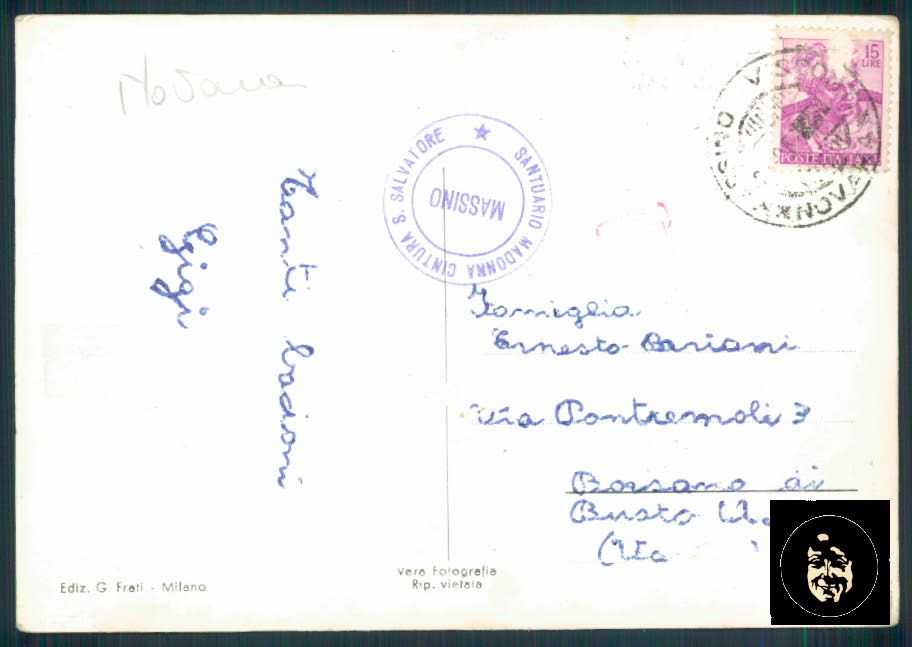 Novara
15
LIRE
POSTE ITALIANE
SANTUARIO MADONNA CINTURA S. SALVATORE
MASSINO
Tanti bacioni
Gigi
Famiglia
Ernesto Bariani
Via Pontremoli 3
Borsano di
Busto
Ediz. G. Frati - Milano
Vera Fotografia
Rip. vietata
MASSINO VISCONTI